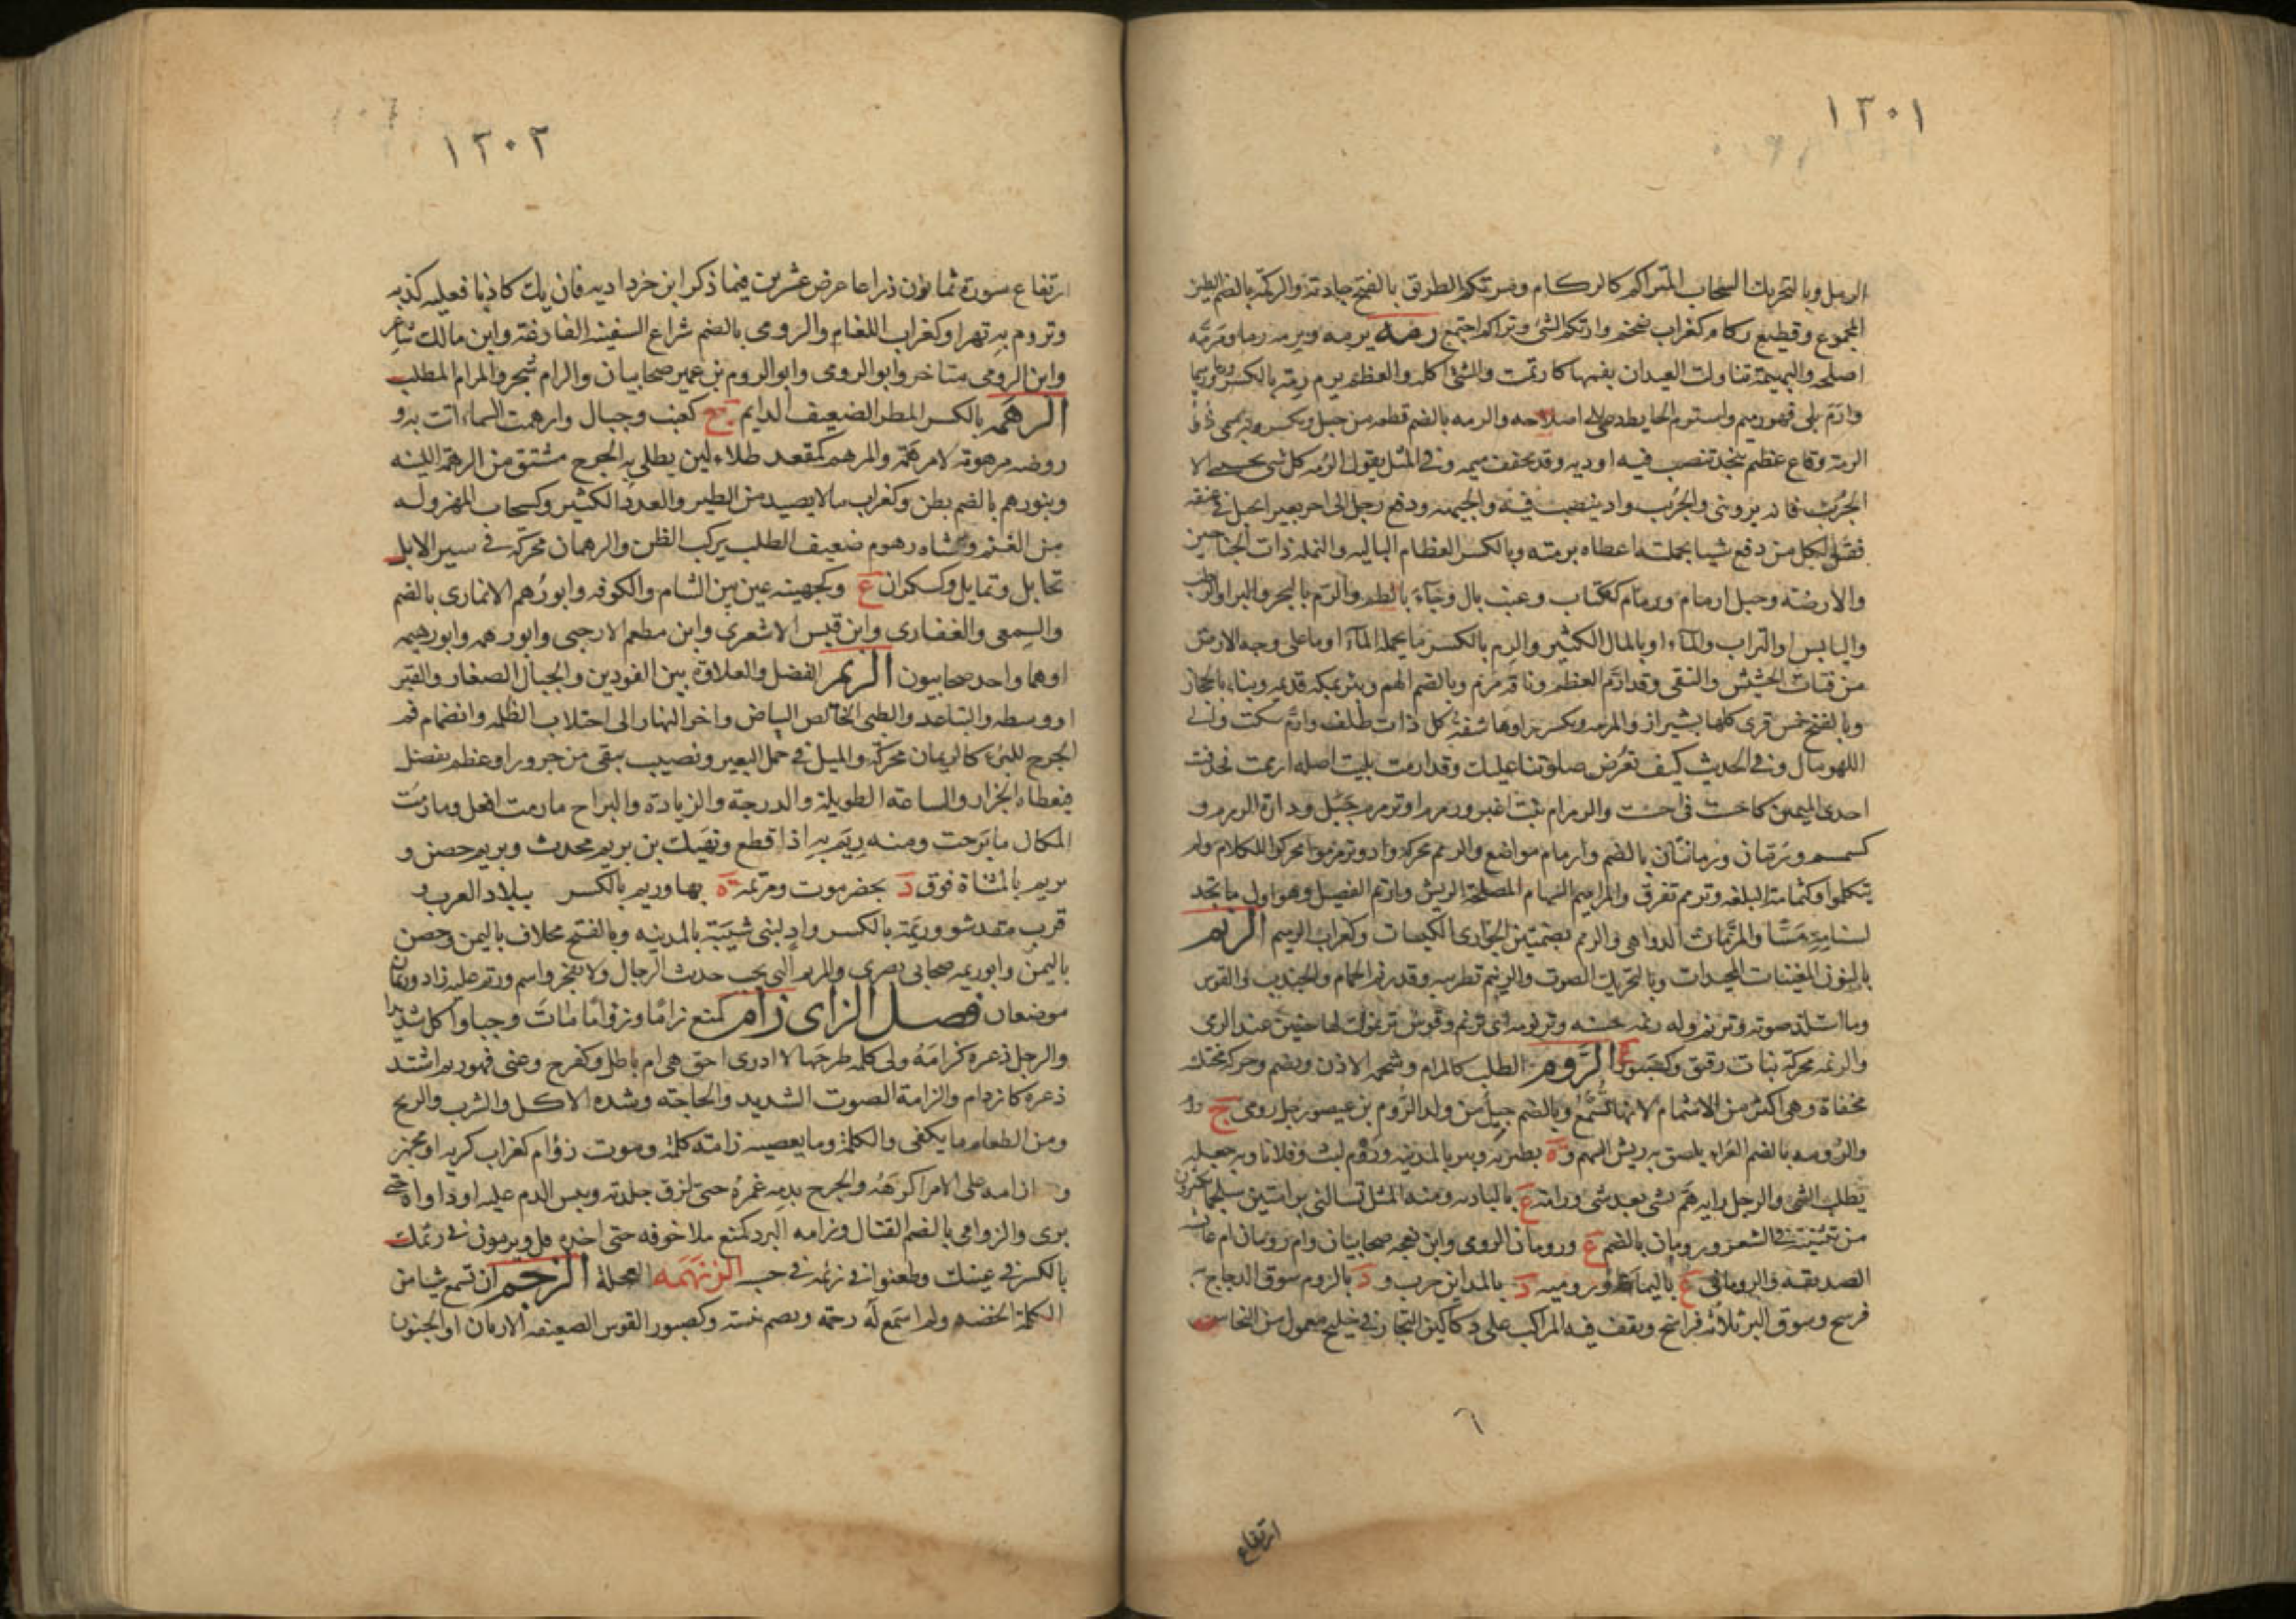 ١٣٠١
الرمل وبالتحريك السحاب المتراكم كالركام ومرتكم الطريق بالفتح جادته والركمة بالضم الطين
المجموع وقطيع ركام كغراب ضخم وارتكم الشئ وتراكم اجتمع رمه يرمه ويرمه رما ومرمة
اصلحه والبهيمة تناولت العيدان بفمها كارتمت والشئ اكله والعظم يرم رمة بالكسر ورما ورميما
وارم بلى فهو رميم واسترم الحايط دعا الى اصلاحه والرمه بالضم قطعه من حبل ويكسر وبه سمى ذو
الرمة وقاع عظيم بنجد تنصب فيه اوديه وقد تخفف ميمه وفى المثل يقول الرمه كل شى يحسى الا
الجريب فانه يروينى والجريب واد ينصب فيه والجبهه ودفع رجل الى اخر بعيرا بحبل فى عنقه
فقيل لكل من دفع شيا بجملته اعطاه برمته وبالكسر العظام الباليه والنمله ذات الجناحين
والارضة وحبل ارمام ورمام ككتاب وعنب بال وجاء بالطم والرم بالبحر والبر او الرطب
واليابس او التراب والماء او بالمال الكثير والرم بالكسر ما يحمله الماء او ما على وجه الارض
من فتات الحشيش والنقى وقد ارم العظم وناقة مرم وبالضم الهم وبئر بمكه قديمه وبناء بالحجاز
وبالفتح خمس قرى كلها بشيراز والمرمه وتكسر راوها شفة كل ذات ظلف وارم سكت والى
اللهو مال وفى الحديث كيف تعرض صلوتنا عليك وقد ارمت بليت اصله ارممت فحذفت
احدى الميمين كاحست فى احسست والرمرام نبت اغبر ورمرم او ترمرم جبل ودارة الرمرم
كسمسم ورمان ورمانتان بالضم وارمام مواضع والرمم محركه واد وترمرموا تحركوا للكلام ولم
يتكلموا وكثمامة البلغه وترمم تفرق والمراميم السهام المصلحة الريش وارتم الفصيل وهو اول ما تجد
لسنامه مسا والمرمات الدواهى والرمم بضمتين الجوارى الكيسات وكغراب الرميم الرنم
بضمتين المغنيات المجيدات وبالتحريك الصوت والرنيم تطريبه وقد رنم الحمام والجندب والقوس
وما استلذ صوته وترنم وله رنمه حسنه وترنومه اى ترنم وقوس ترنموت لها حنين عند الرمى
والرنمه محركة نبات دقيق وكصبور ع الروم الطلب كالمرام وشحمه الاذن ويضم وحركة مختلسه
مخفاة وهى اكثر من الاشمام لانها تسمع وبالضم جيل من ولد الروم بن عيصو رجل رومى ج روم
والرومه بالضم الغراء يلصق به ريش السهم وة بطبريه وبئر بالمدينه وروم لبث وفلانا وبه جعله
يطلب الشئ والرجل رايه هم بشى بعد شى ورامة ع بالباديه ومنه المثل تسالنى برامتين سلجما
من تثنيته فى الشعر ورومان بالضم ع ورومان الرومى وابن نعجه صحابيان وام رومان ام عائشه
الصديقه والرومانى ع باليمامه ورومية د بالمداين خرب ود بالروم سوق الدجاج به
فرسخ وسوق البر ثلاثه فراسخ وتقف فيه المراكب على دكاكين التجار فى خليج معمول من النحاس
ارتفاع
١٣٠٢
ارتفاع سورة ثمانون ذراعا عرض عشرين فيما ذكر ابن خرداديه فان يك كاذبا فعليه كذبه
وتروم به تهزا وكغراب اللغام والرومى بالضم شراع السفينه الفارغه وابن مالك شاعر
وابن الرومى متاخر وابو الرومى وابو الروم بن عمير صحابيان والرام شجر والمرام المطلب
الرهمه بالكسر المطر الضعيف الدايم ج كعنب وجبال وارهمت السماء اتت به و
روضه مرهومة لا مرهمة والمرهم كمقعد طلاء لين يطلى به الجرح مشتق من الرهمة للينه
وبنو رهم بالضم بطن وكغراب ما لا يصيد من الطير والعدد الكثير وكسحاب المهزوله
من الغنم وشاه رهوم ضعيف الطلب يركب الظن والرهمان محركة فى سير الابل
تحامل وتمايل وكسكران ع وكجهينه عين بين الشام والكوفه وابو رهم الانمارى بالضم
والسمعى والغفارى وابن قيس الاشعرى وابن مطعم الارحبى وابو رهمه وابو رهيمه
او هما واحد صحابيون الريم الفضل والعلاوة بين الفودين والجبال الصغار والقبر
او وسطه والتباعد والظبى الخالص البياض واخر النهار الى اختلاط الظلمه وانضمام فم
الجرح للبرء كالريمان محركة والميل فى حمل البعير ونصيب يبقى من جزور او عظم يفضل
فيعطاه الجزار والساعة الطويلة والدرجة والزيادة والبراح ما رمت افعل وما رمت
المكان ما برحت ومنه وريم به اذا قطع ونفيك بن يريم محدث ويريم حصن و
تريم بالمثناة فوق د بحضرموت ومريمة ة بها وريم بالكسر ببلاد العرب و
قرب مقدشو وريمة بالكسر واد لبنى شيبة بالمدينه وبالفتح مخلاف باليمن وحصن
باليمن وابو ريمه صحابى بصرى والمريم التى تحب حديث الرجال ولا تفجر واسم وريم عليه زاد وريمان
موضعان فصل الزاى زام كمنع زاما وزواما مات وجيا واكل شديدا
والرجل ذعره كزامه ولى كلمه طرحها لا ادرى احق هى ام باطل وكفرح وعنى فهو زئم اشتد
ذعره كازدام والزامة الصوت الشديد والحاجة وشده الاكل والشرب والريح
ومن الطعام ما يكفى والكلمة وما يعصيه زامة كلمة وموت زؤام كغراب كريه او مجهز
وازامه على الامر اكرهه والجرح بدمه غمزه حتى لزق جلدته ويبس الدم عليه او داواه حتى
برى والزوامى بالضم القتال وزامه البرد كمنع ملا جوفه حتى اخذه
بالكسر فى عينك وطعنوا فى زئمه فى حسبه الزنهمه العجلة الزجم ان تسمع شيا من
الكلمة الخفيه ولم اسمع له زجمة وبضم نبسة وكصبور القوس الضعيفه الارنان او الحنون